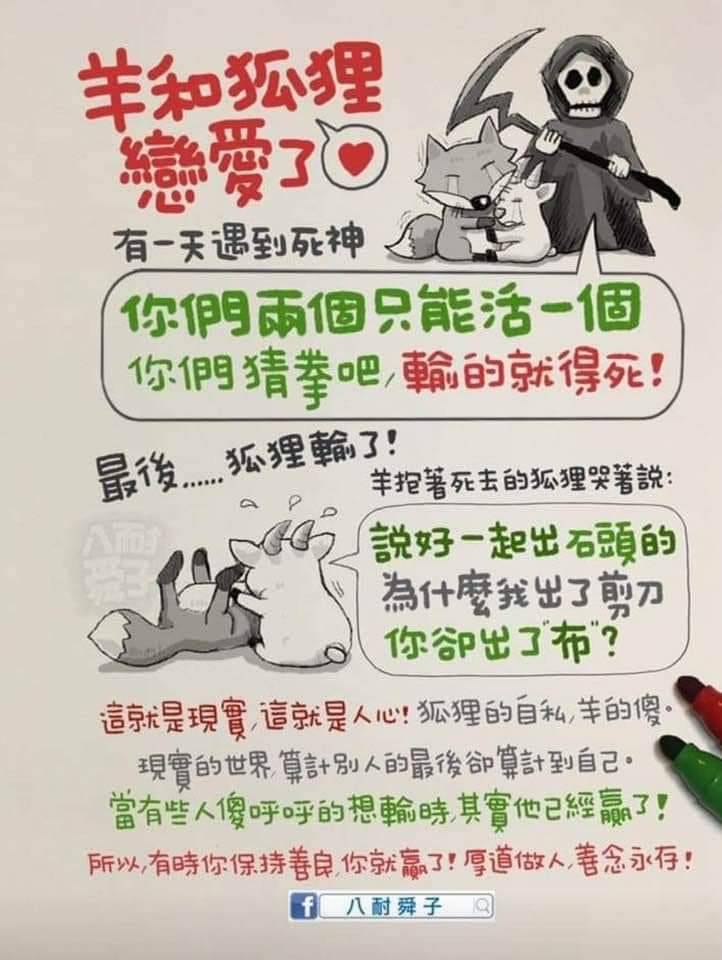 羊和狐狸
戀愛了
有一天遇到死神
你們兩個只能活一個
你們猜拳吧,輸的就得死!
最後......狐狸輸了!
羊抱著死去的狐狸哭著說:
說好一起出石頭的
為什麼我出了剪刀
你卻出了"布"?
八耐
舜子
這就是現實,這就是人心!狐狸的自私,羊的傻。
現實的世界,算計別人的最後卻算計到自己。
當有些人傻呼呼的想輸時,其實他已經贏了!
所以,有時你保持善良,你就贏了!厚道做人,善念永存!
f 八耐舜子